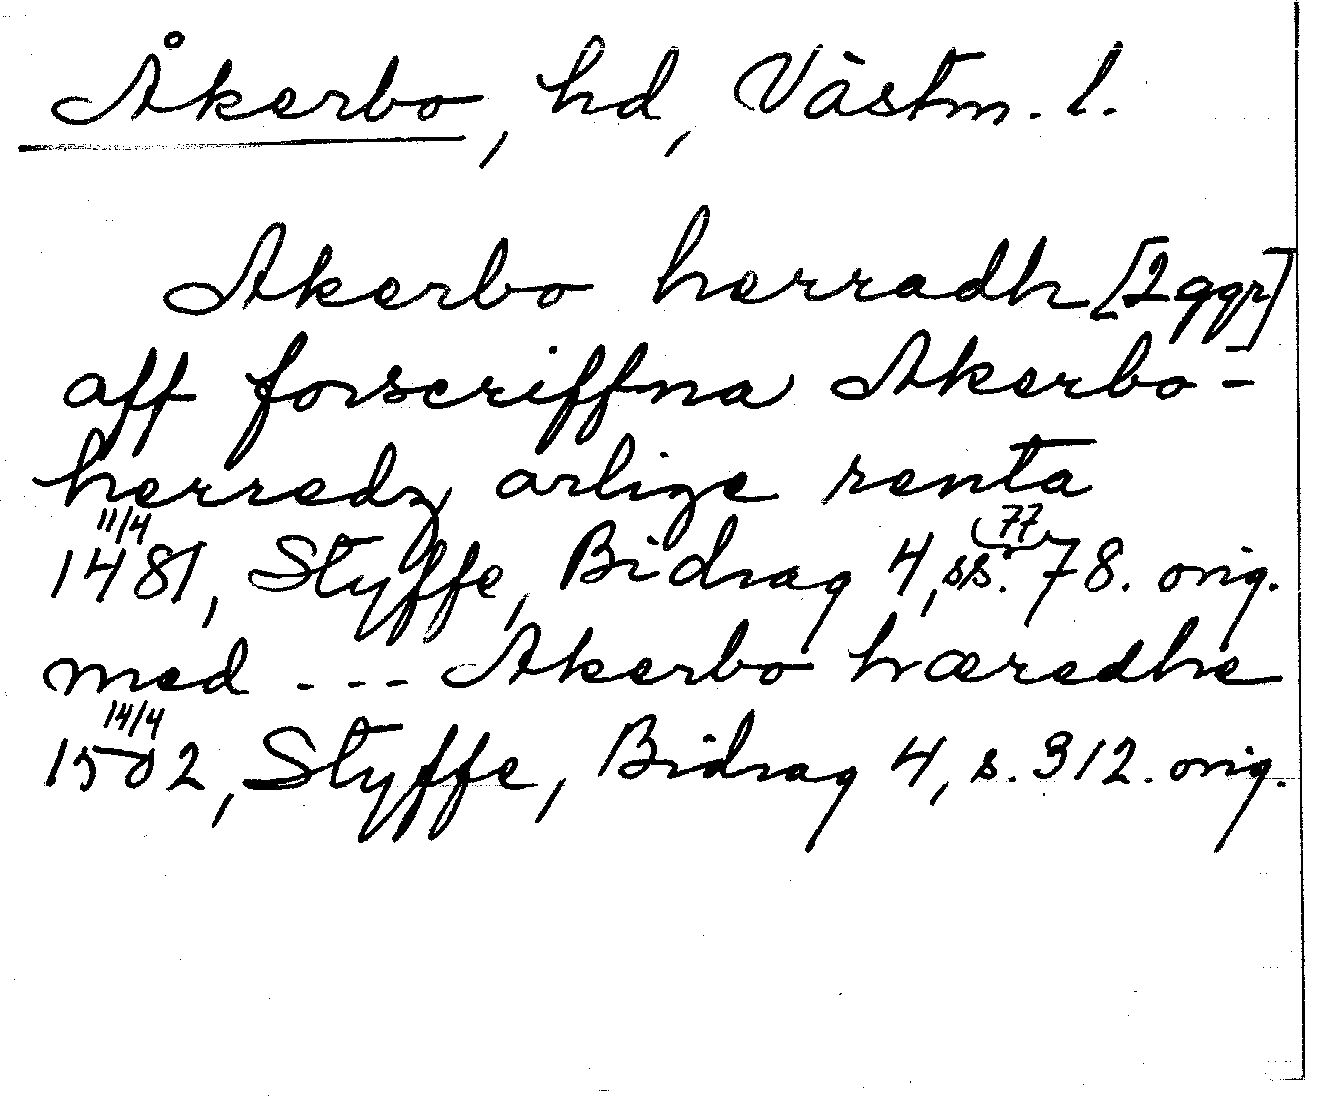 Åkerbo, hd, Västm. l.
Akerbo herradh [2 ggr]
aff forscriffna Akerbo-
herredz arlige renta
11/4
77
1481, Styffe, Bidrag 4, ss. 78. orig.
med - - - Akerbo hæredhe
14/4
1502, Styffe, Bidrag 4, s. 312. orig.